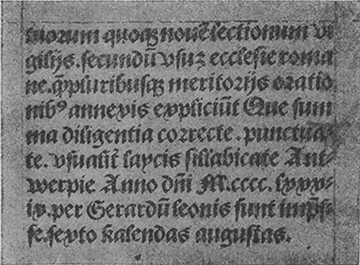 tuorum quoqꝫ nouē lectionum vi
gilijs. secundū vsuꝫ ecclesie roma
ne. qͣꝫpluribusqꝫ meritorijs oratio
nibꝰ annexis expliciūt Que sum
ma diligentia correcte. punctua-
te. vsualit̄ laycis sillabicate Ant-
werpie Anno dn̄i M.cccc. lxxx-
ix. per Gerardū leonis sunt imp̄s-
se. sexto kalendas augustas.